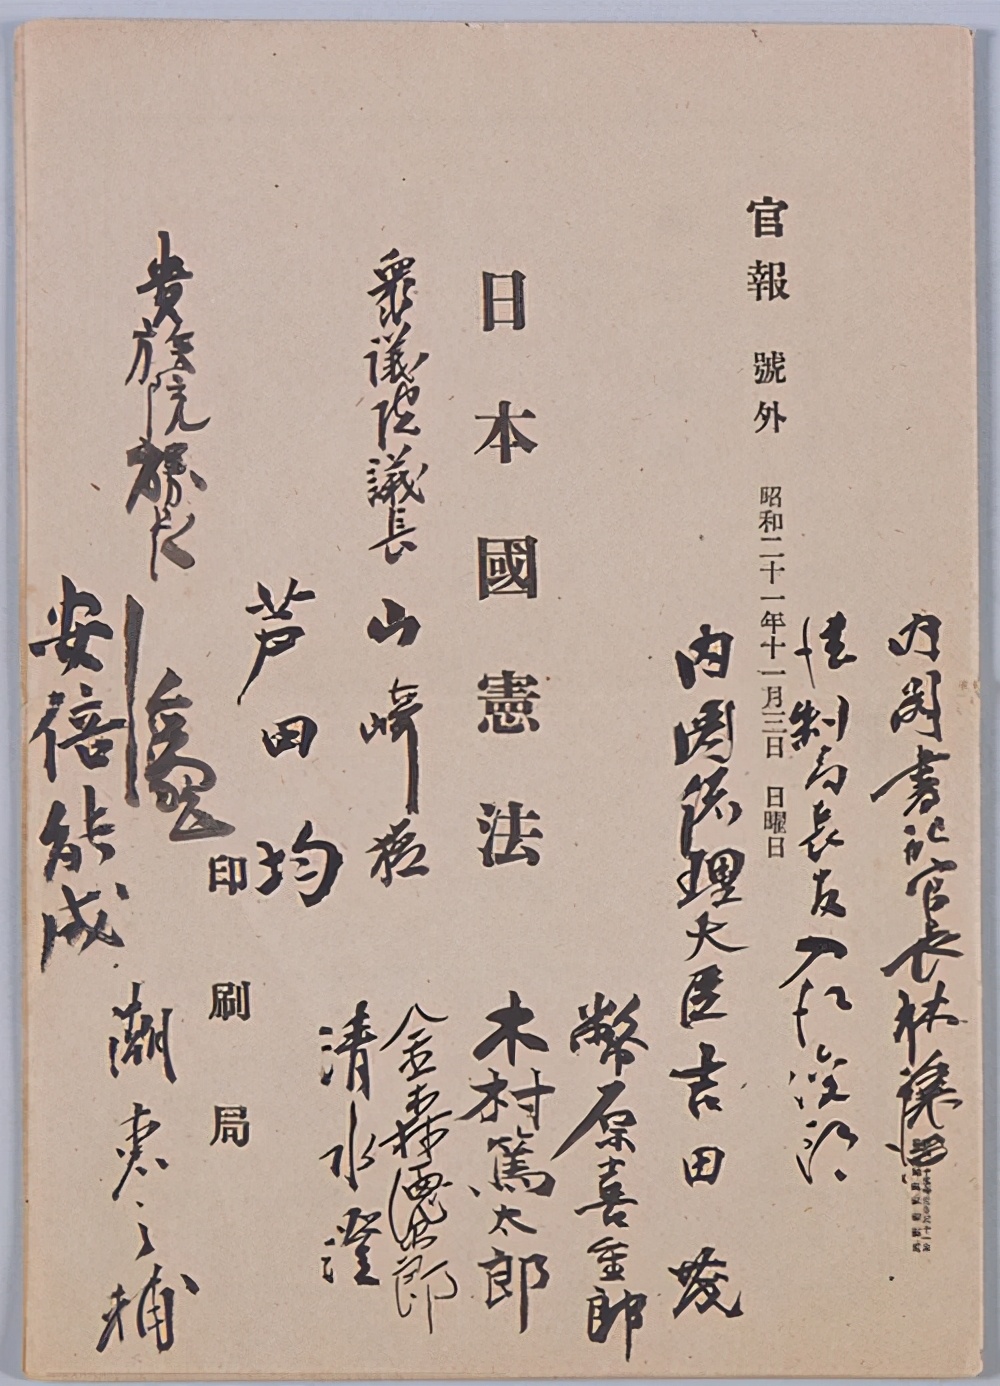 内閣書記官長 林讓治
法制局長官 入江俊郎
官報 號外 昭和二十一年十一月三日 日曜日
内閣総理大臣 吉田茂
幣原喜重郎
日本國憲法
木村篤太郎
金森德次郎
衆議院議長 山崎猛
清水澄
芦田均
印刷局
貴族院議長
安倍能成
潮恵之輔